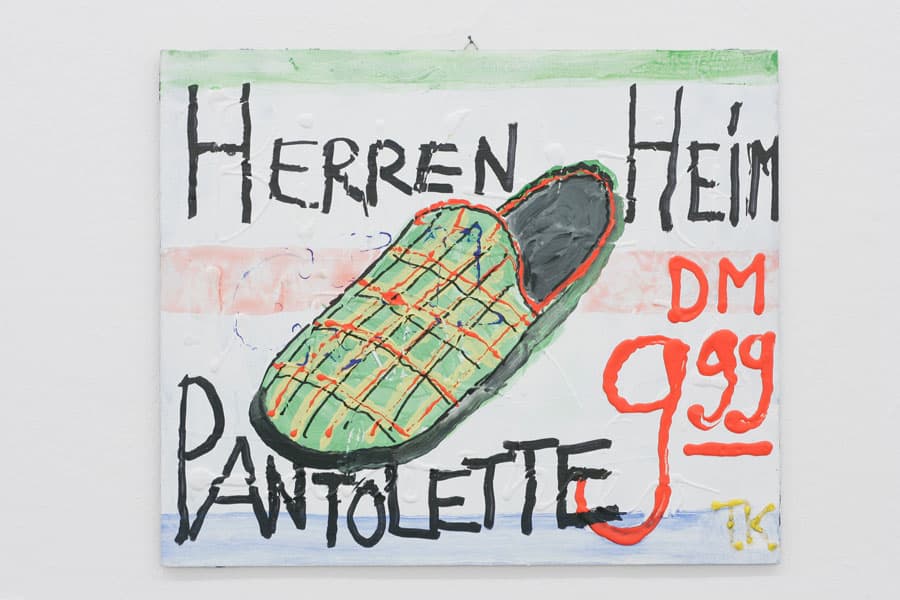 HERREN HEIM
DM
9 99
PANTOLETTE
T.K.